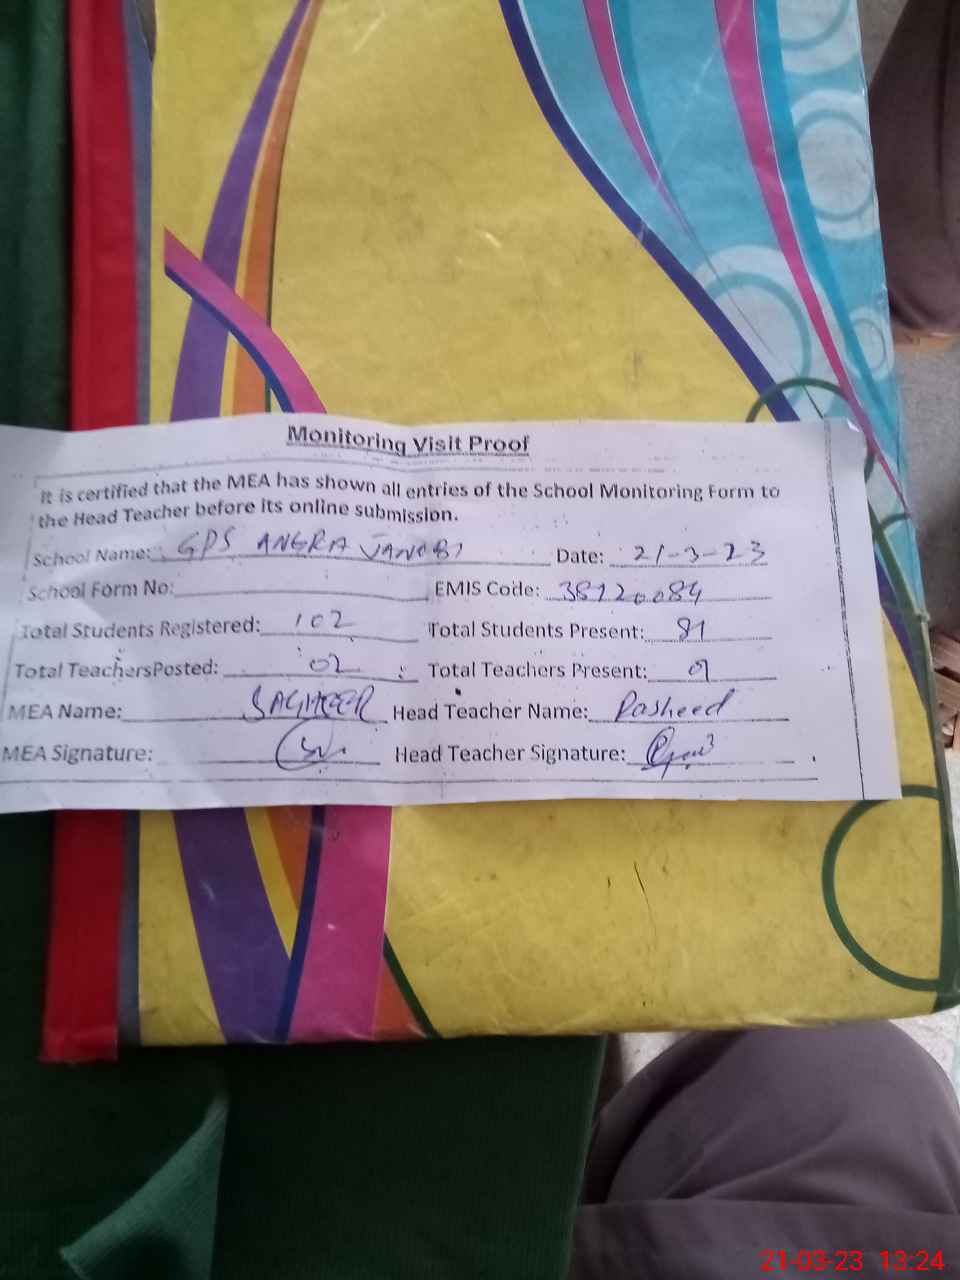 Monitoring Visit Proof
It is certified that the MEA has shown all entries of the School Monitoring Form to
the Head Teacher before its online submission.
School Name: GPS ANGRA JANOBI Date: 21-3-23
School Form No: EMIS Code: 38120084
Total Students Registered: 102 Total Students Present: 81
Total TeachersPosted: 02 Total Teachers Present:
MEA Name: SAGHEER Head Teacher Name: Rasheed
MEA Signature: Head Teacher Signature:
21-03-23 13:24